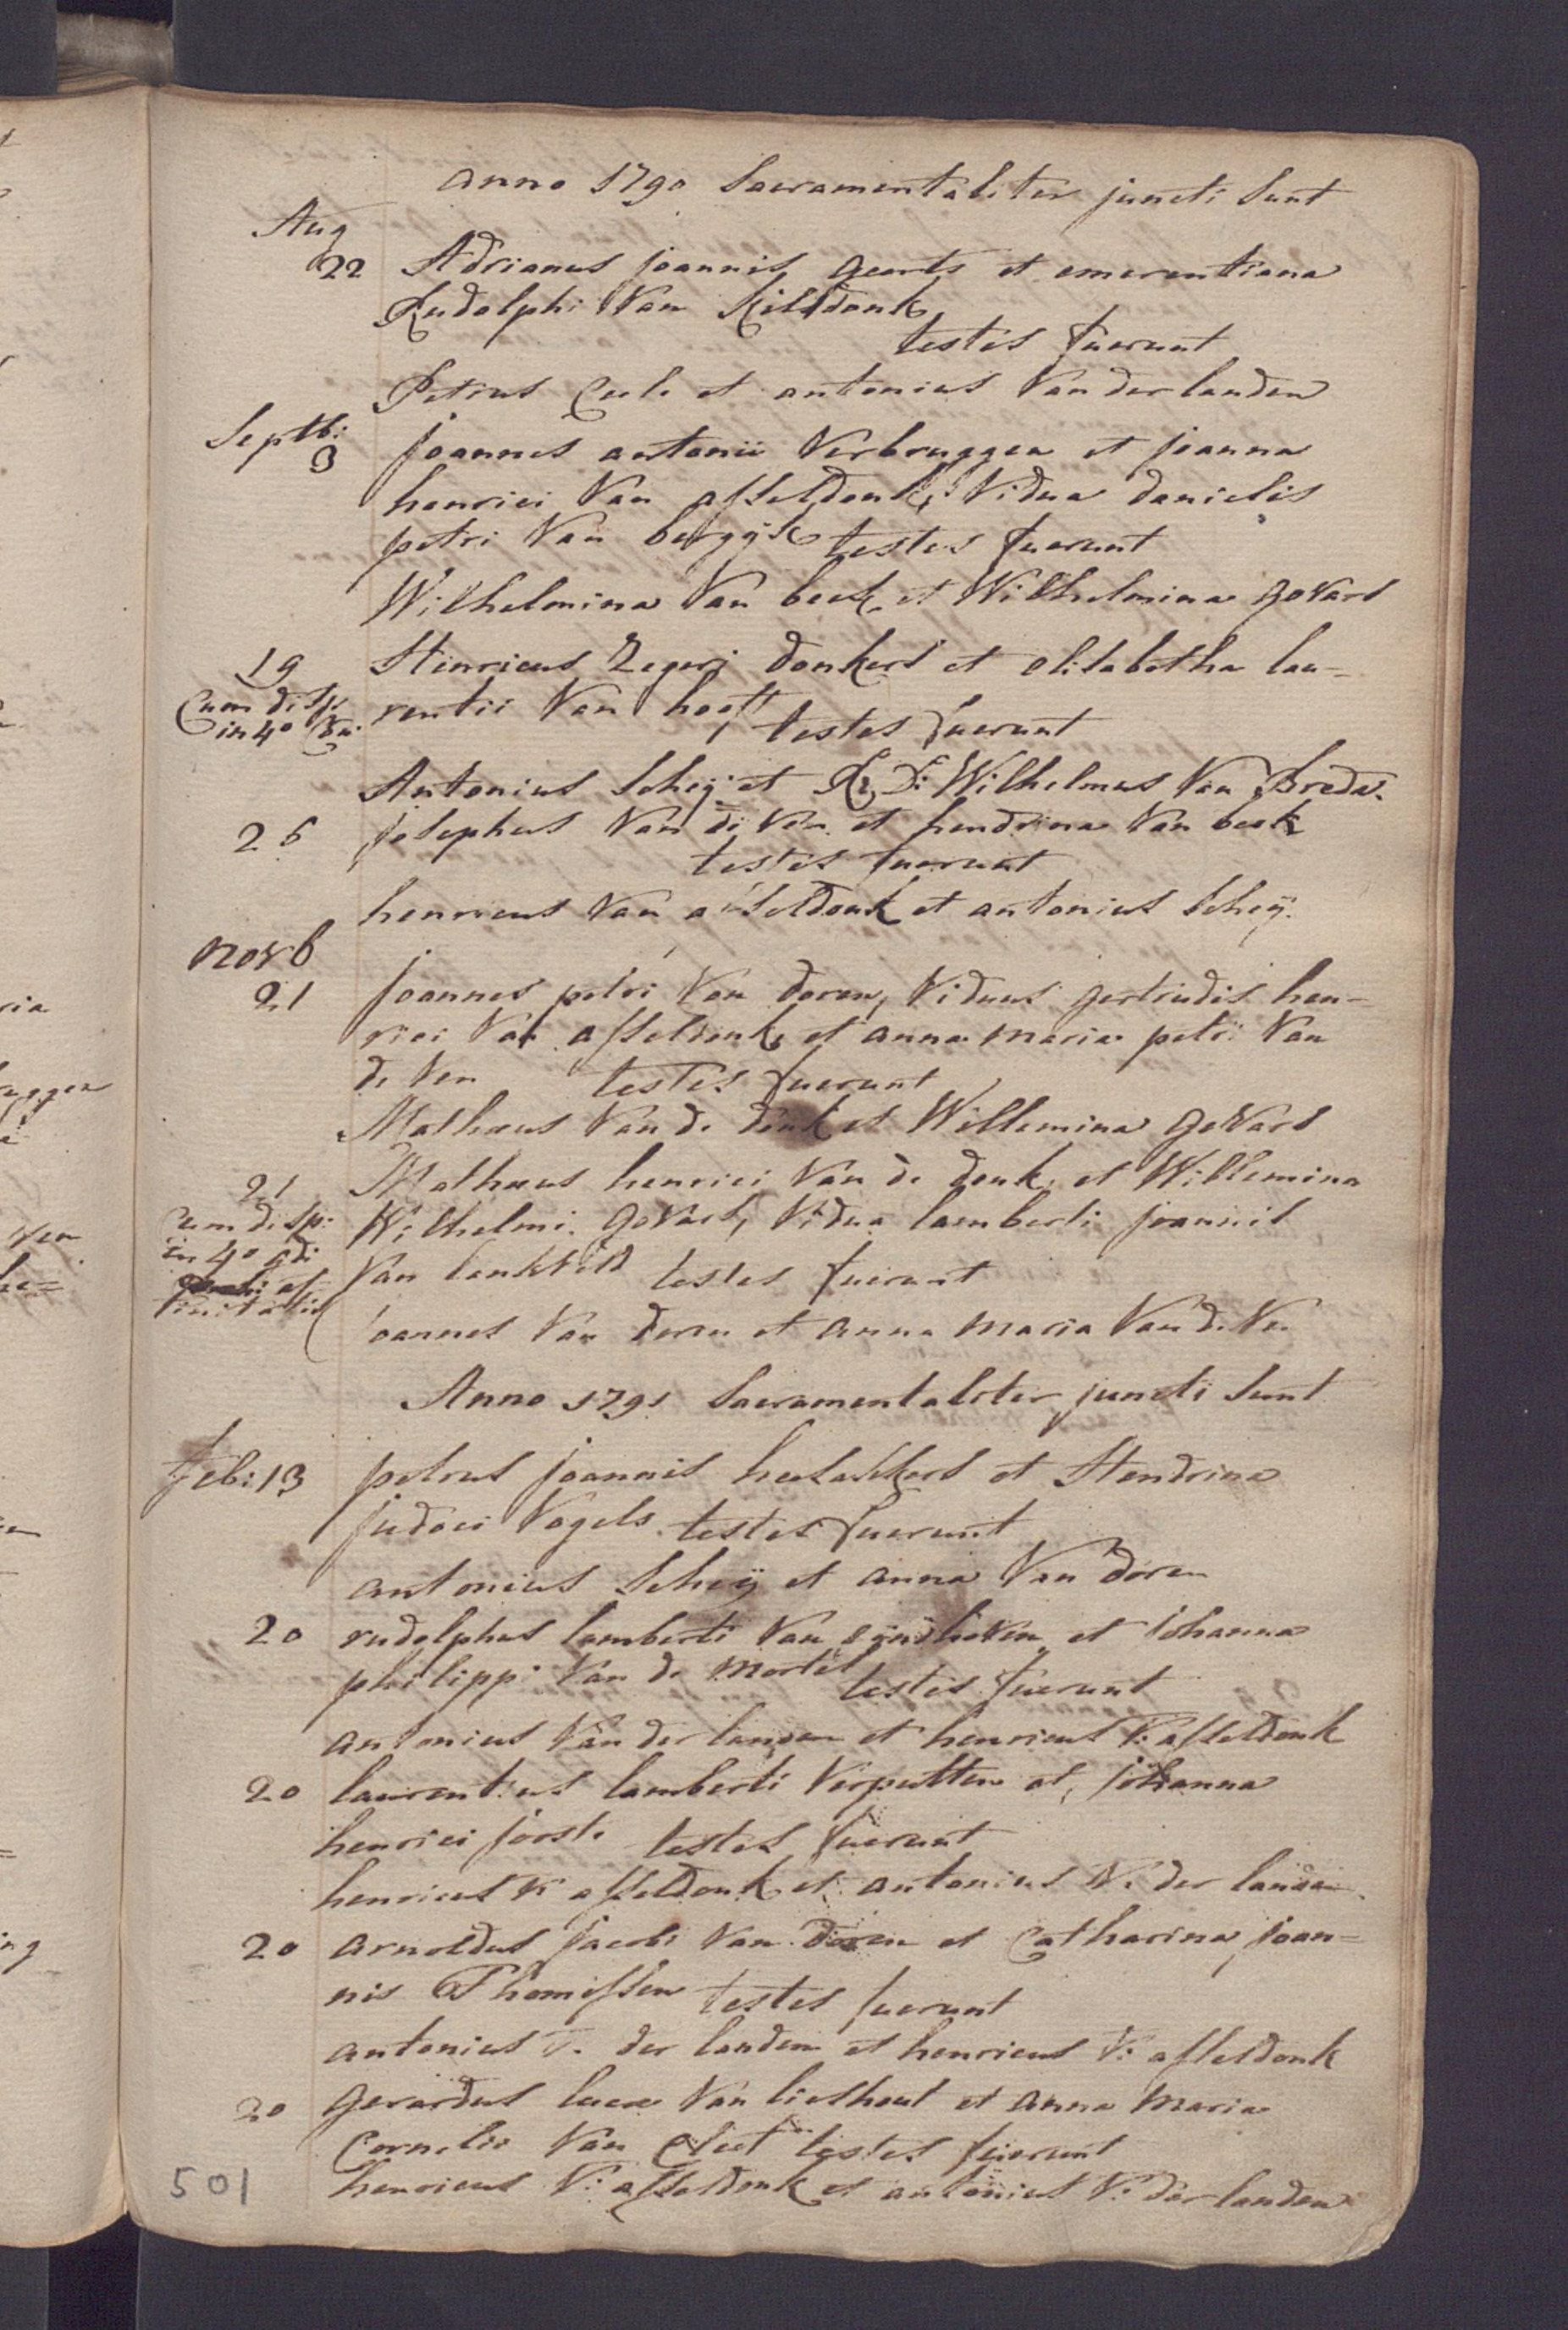 anno 1790 Sacramentaliter juncti sunt
Aug
22 Adrianus joannis geerts et emerentiana
Rudolphi Van Kilsdonk
testes fuerunt
Petrus et antonius Van der landen
Septb:
3 joannes antonii Verbruggen et joanna
henrici Van asseldonk, Vidua danielis
petri Van bergijk testes fuerunt
Wilhelmina Van beek et Wilhelmina goVars
19 Hinricus Zegeri donkers et elisabetha lau=
Cum disp rentii Van hooft
in 4o testes fuerunt
Antonius Scheij et R: D: Wilhelmus Van breda.
25 josephus Van de Ven et hendrina Van beek
testes fuerunt
henricus Van asseldonk et antonius Scheij.
novb
21 joannes petri Van doren, Viduus gertrudis hen=
rici Van asseldonk et anna maria petri Van
de Ven testes fuerunt
Matheus Van de donk et Willemina goVars
21 Matheus henrici Van de donk et Willemina
Cum disp: Wilhelmi goVars, Vidua lamberti joannis
in 4o Van lankVeld testes fuerunt
joannes Van doren et anna maria Van de Ven
Anno 1791 Sacramentaliter juncti sunt
feb: 13 petrus joannis heesakkers et Hendrina
judoci Vogels testes fuerunt
antonius Scheij et anna Van doren
20 rudolphus lamberti Van eijndhoven et johanna
philippi Van de mortel testes fuerunt
antonius Van der landen et henricus V: asseldonk
20 laurentius lamberti Verputten et johanna
henrici joosts testes fuerunt
henricus V: asseldonk et antonius V: der landen
20 arnoldus jacobi Van doren et Catharina joan=
nis Thomissen testes fuerunt
antonius V. der landen et henricus V: asseldonk
20 gerardus lucæ Van lieshout et anna maria
Cornelii Van testes fuerunt
henricus V: asseldonk et antonius V: der landen
501